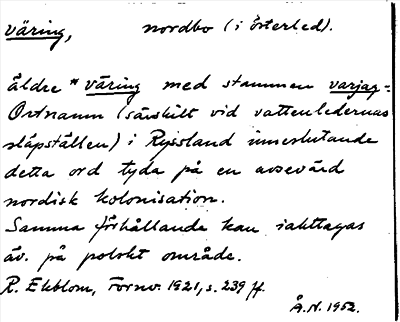 väring, nordbo (i österled).
äldre * väring med stammen varjag-
Ortnamn (särskilt vid vattenledernas
släpställen) i Ryssland inneslutande
detta ord tyda på en avsevärd
nordisk kolonisation.
Samma förhållande kan iakttagas
äv. på polskt område.
R. Ekblom, Fornv. 1921, s. 239 ff.
Å.N. 1952.